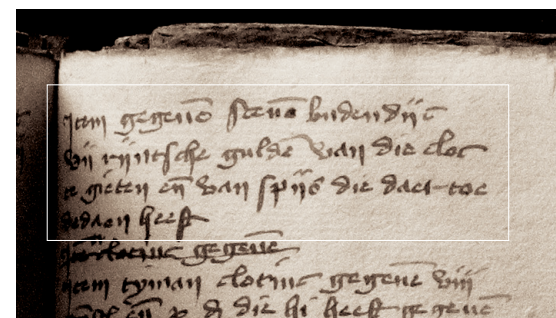 Item gegeue steue budendijc
vij rijntsche gulde van die cloc
te gieten en van spijs die daer toe
gedaen heeft
gegeue
Item tyman clotinc gegeue viij
en die hi heeft gegeue